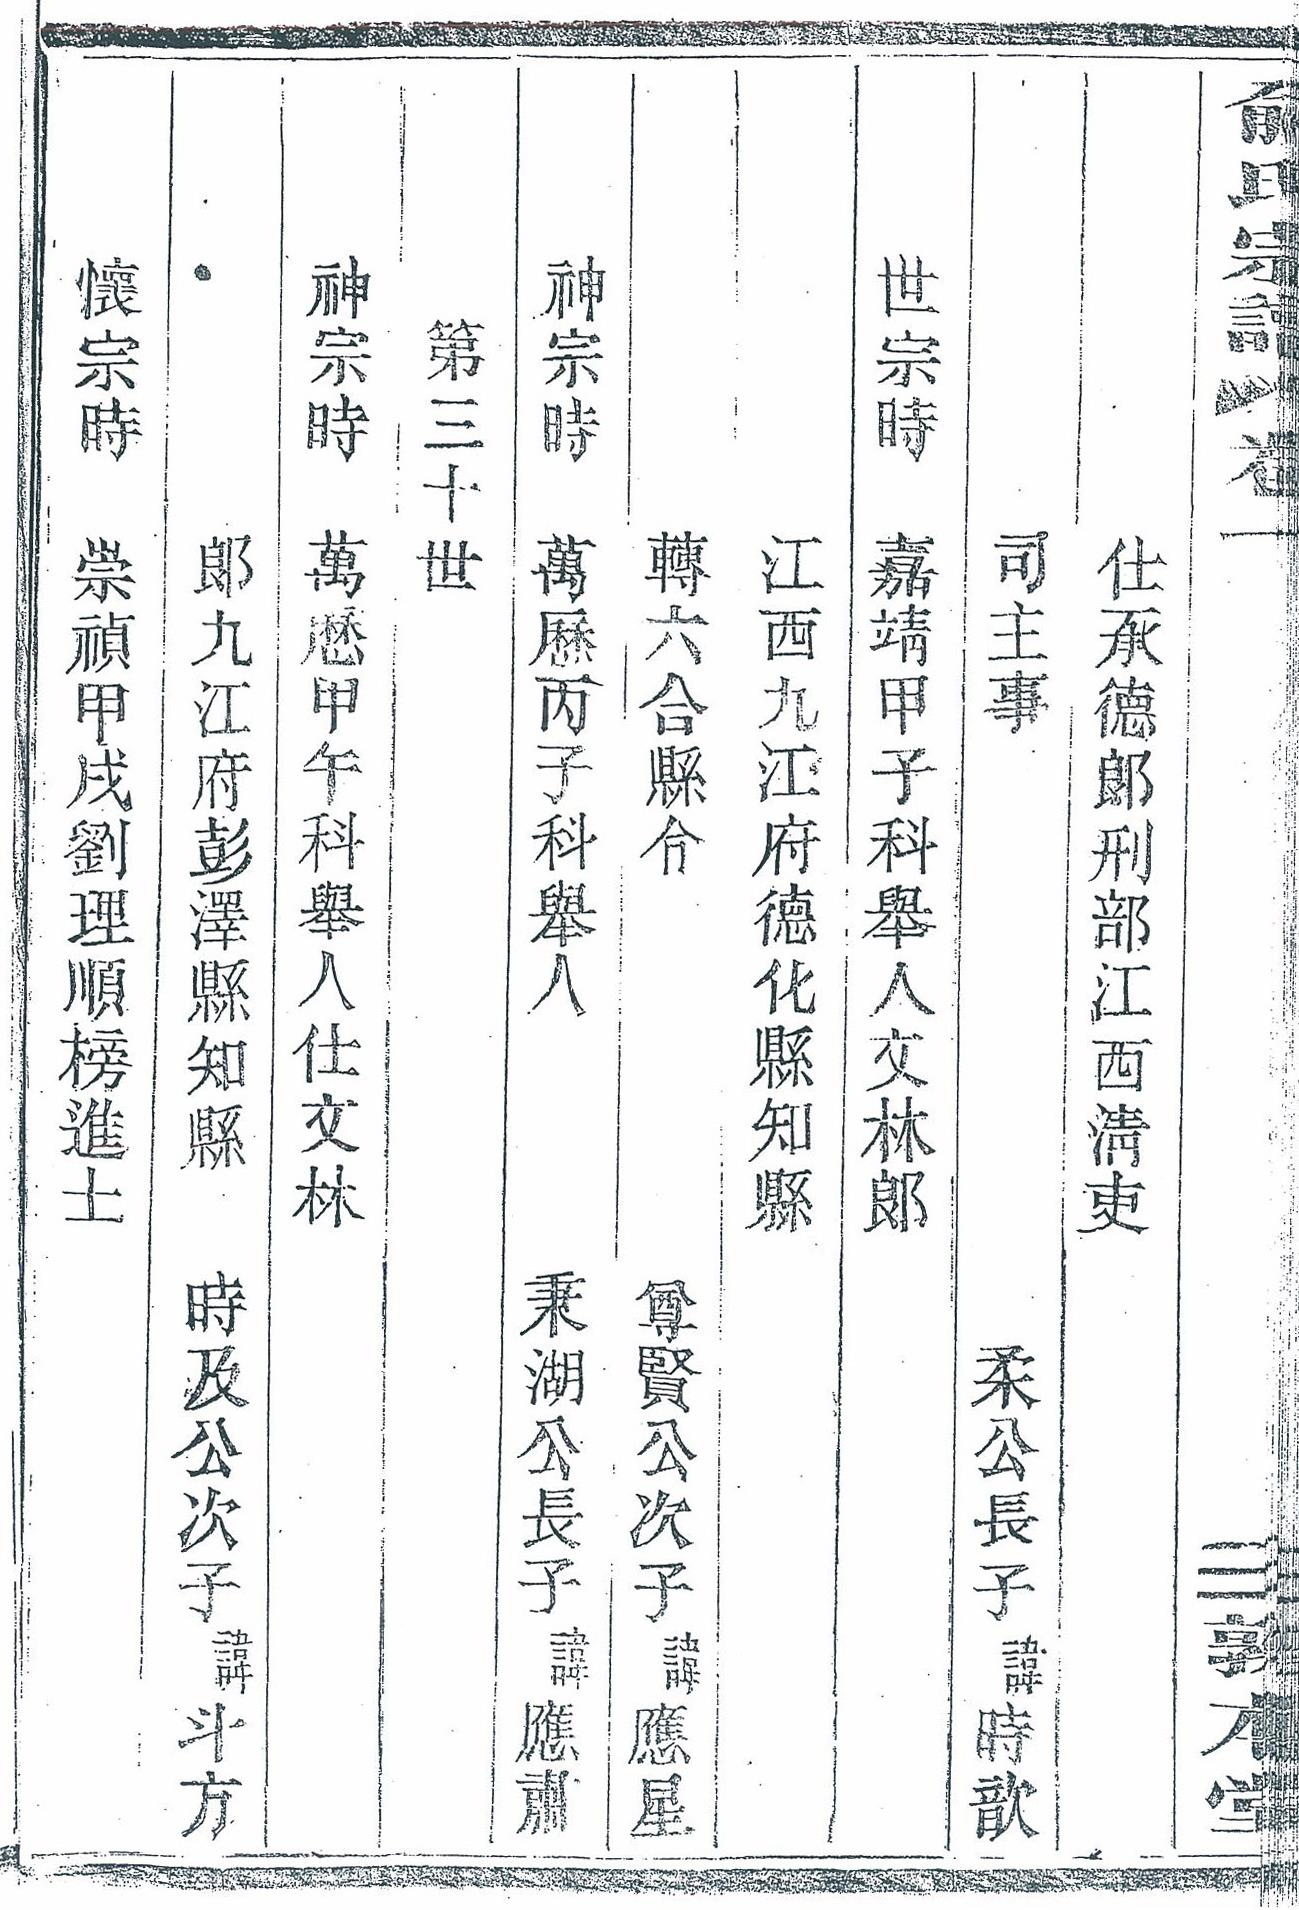 俞氏宗譜 卷一 三 敦本堂
仕承德郎刑部江西清吏
司主事 柔公長子 諱 時歆
世宗時 嘉靖甲子科舉人文林郎
江西九江府德化縣知縣
轉六合縣令 尊賢公次子 諱 應星
神宗時 萬歷丙子科舉人 秉湖公長子 諱 應肅
第三十世
神宗時 萬歷甲午科舉人仕文林
郎九江府彭澤縣知縣 時及公次子 諱 斗方
懷宗時 崇禎甲戌劉理順榜進士